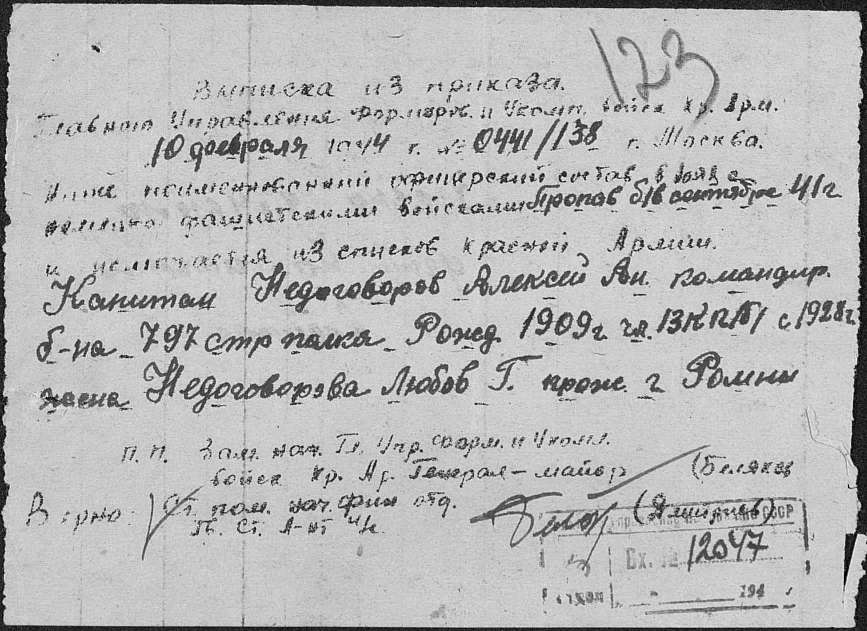 123
Выписка из приказа.
Главного Управления Формир. и Уком. войск Кр. Арм.
10 февраля 1944 г. № 0441/138 г. Москва.
Ниже поименованный офицерский состав в боях с
немецко фашистскими войсками Пропав б/в сентябре 41 г
и исключается из списков Красной Армии.
Капитан Недоговоров Алексей Ан. командир.
б-на 797 стр полка Рожд. 1909 г чл. ВКП/б/ с 1928 г.
жена Недоговорова Любов Г. прож. г Ромны
п. п. Зам. нач. Гл. Упр. форм. и Уком.
войск Кр. Ар. Генерал-майор (Беляков
Верно: Ст. пом. нач. фин отд.
Ст.
СССР
Вх. № 12047
отдел 194